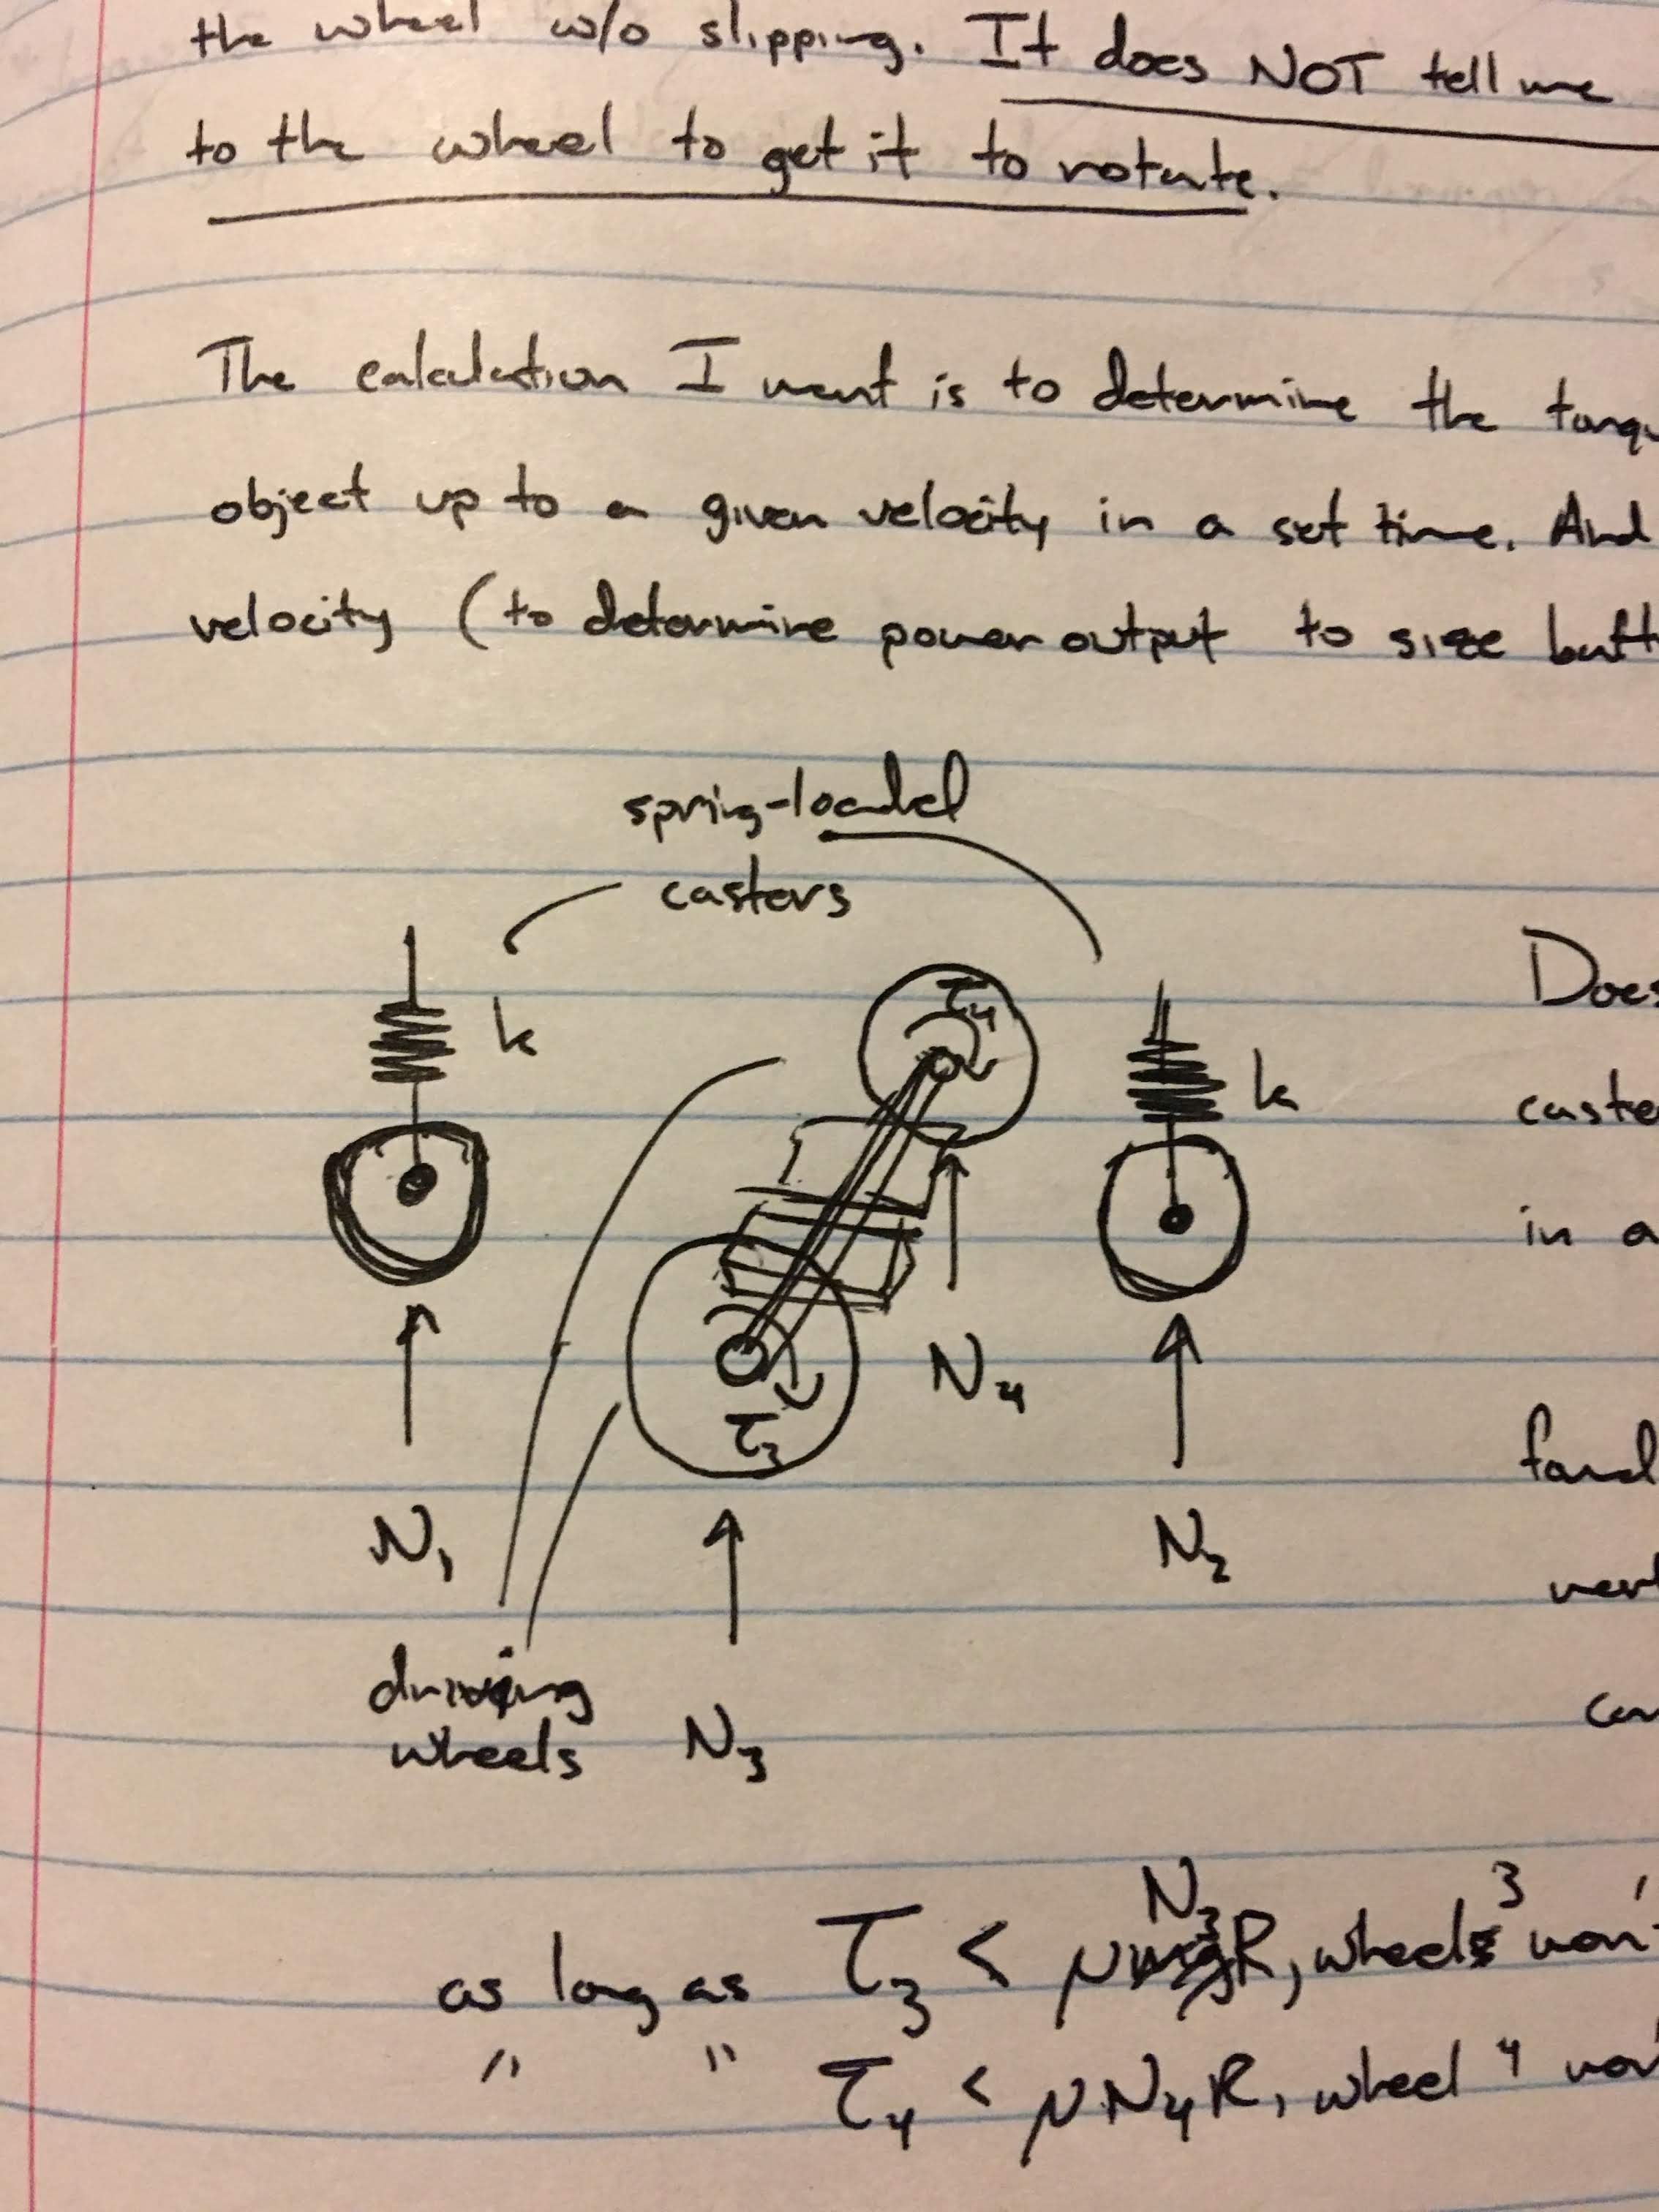 the wheel w/o slipping. It does NOT tell me
to the wheel to get it to rotate.
The calculation I want is to determine the torqu
object up to a given velocity in a set time. And
velocity (to determine power output to size batt
spring-loaded
casters
k
τ4
k
Does
caste
in a
τ3
N4
N1
N2
driving
wheels
N3
as long as τ3 < μN3R, wheel 3 won'
" " τ4 < μN4R, wheel 4 won'